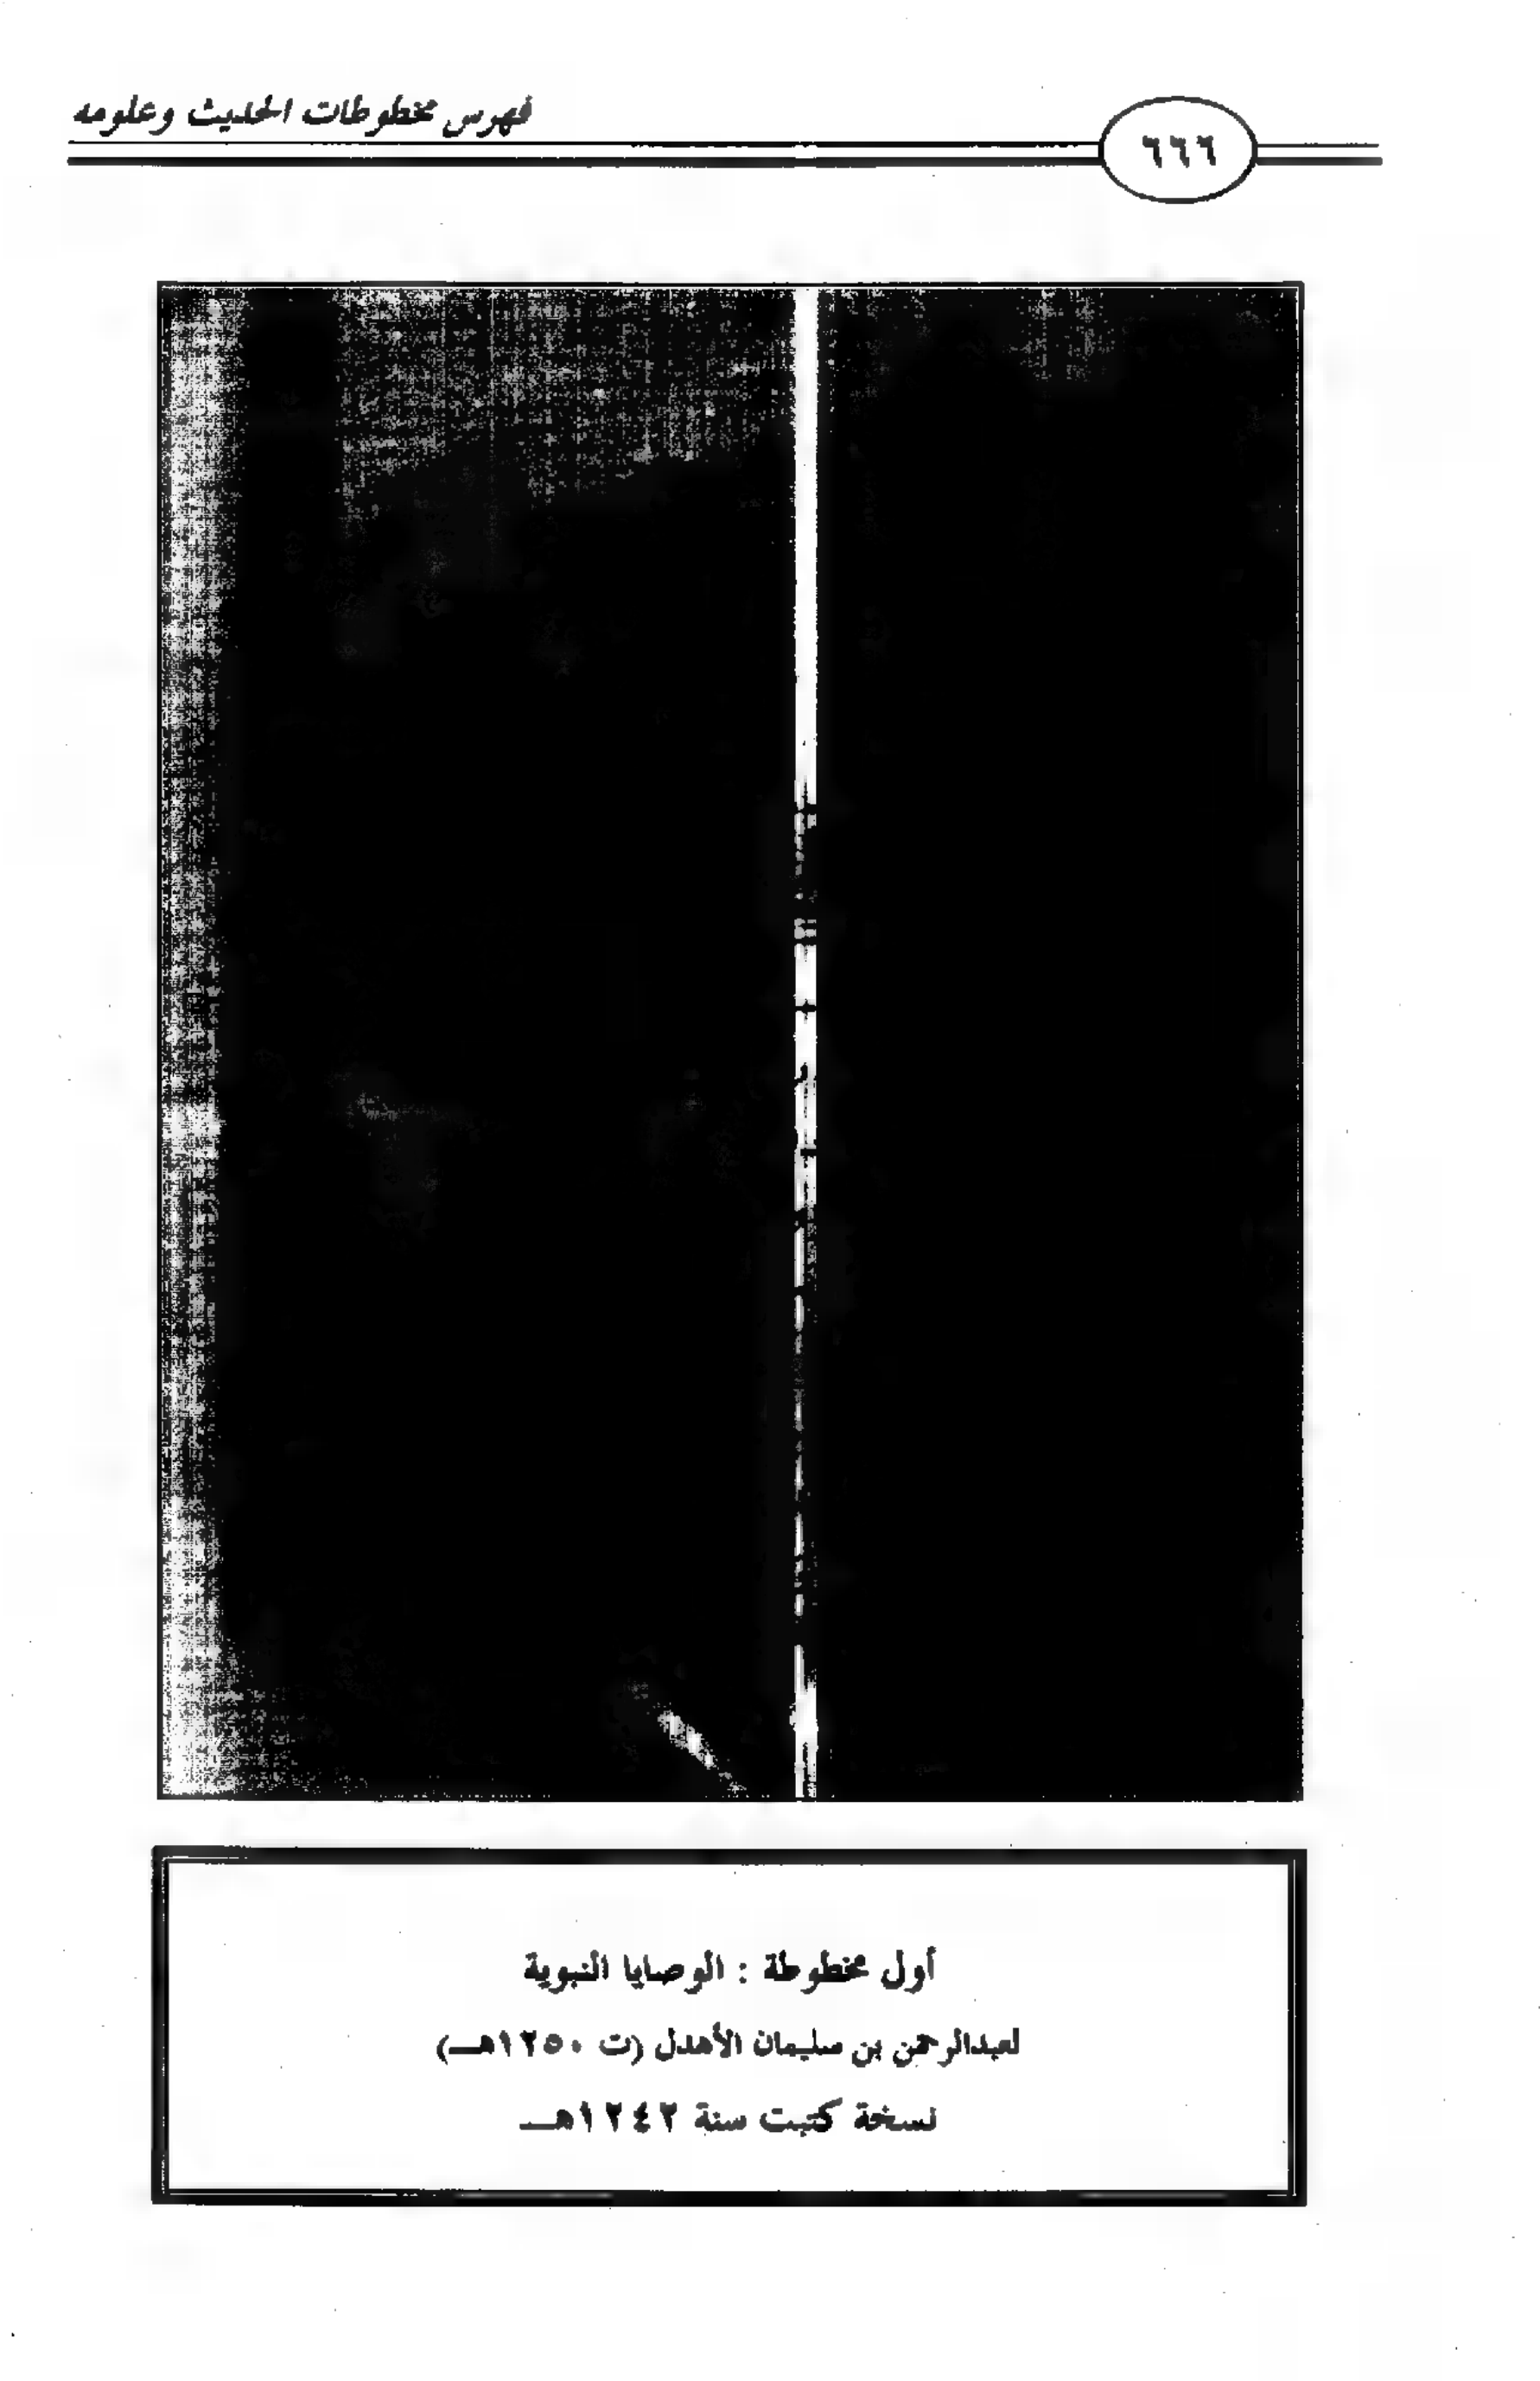 فهرس مخطوطات الحديث وعلومه
٦٦٦
أول مخطوطة : الوصايا النبوية
لعبدالرحمن بن سليمان الأهدل (ت ١٢٥٠هـ)
نسخة كتبت سنة ١٢٤٢هـ